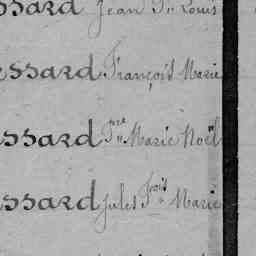 ssard Jean Fs Louis
ssard François Marie
ssard Pre Marie Noël
ssard Jules Fois Marie